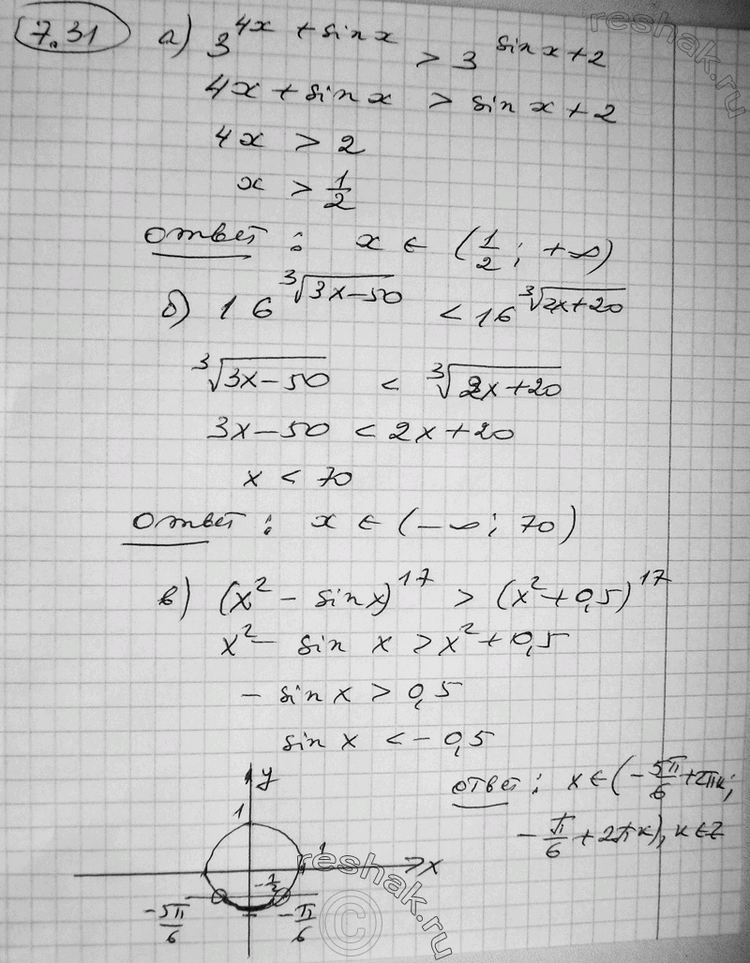 7.31 а) 3^{4x + sin x} > 3^{sin x + 2}
4x + sin x > sin x + 2
4x > 2
x > 1/2
Ответ: x ∈ (1/2; +∞)
б) 16^{∛(3x-50)} < 16^{∛(2x+20)}
∛(3x-50) < ∛(2x+20)
3x-50 < 2x+20
x < 70
Ответ: x ∈ (-∞; 70)
в) (x² - sin x)^{17} > (x² + 0,5)^{17}
x² - sin x > x² + 0,5
- sin x > 0,5
sin x < -0,5
Ответ: x ∈ (-5π/6 + 2πk;
-π/6 + 2πk), k ∈ Z
y
1
1
x
-1/2
-5π/6
-π/6
reshak.ru
reshak.ru
©